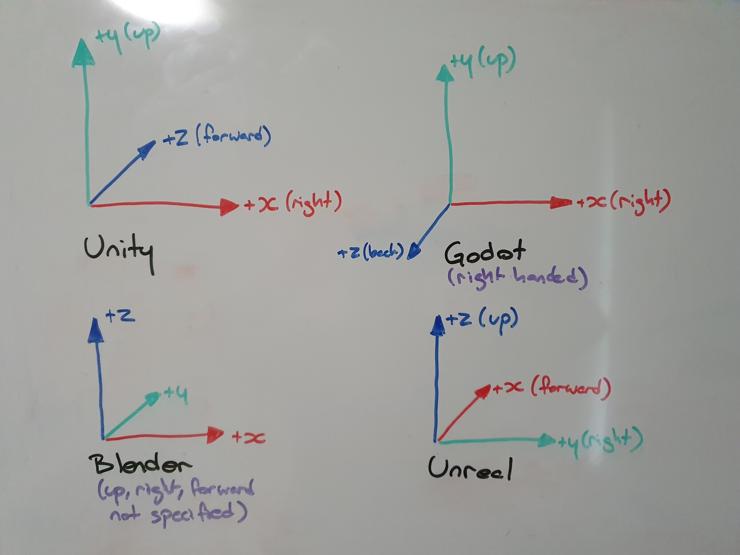 +y (up)
+z (forward)
+x (right)
Unity
+y (up)
+x (right)
+z (back)
Godot
(right handed)
+z
+y
+x
Blender
(up, right, forward
not specified)
+z (up)
+x (forward)
+y (right)
Unreal